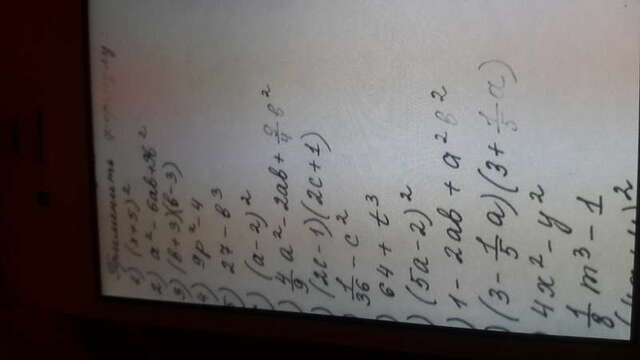 Применить формулу
1) (x+5)²
2) a² - 6ab + 9b²
3) (b+3)(b-3)
4) 9p² - 4
5) 27 - b³
) (a-2)²
) 4/9 a² - 2ab + 9/4 b²
) (2c-1)(2c+1)
) 1/36 - c²
) 64 + t³
) (5a-2)²
) 1 - 2ab + a²b²
) (3 - 1/5 a)(3 + 1/5 a)
4x² - y²
1/8 m³ - 1